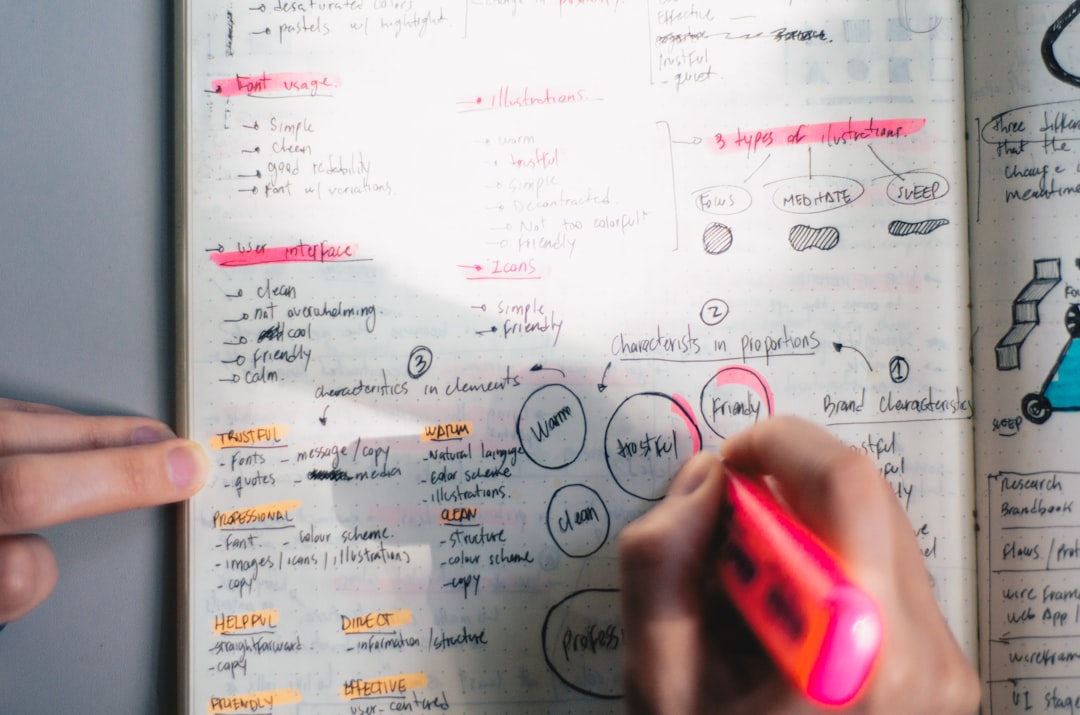 - desaturated colors
- pastels w/ hightlight.
Font usage.
Simple
clean
good readability
Font w/ variations.
User interface
clean
not overwhelming.
cool
Friendly
calm.
illustrations.
warm
trustful
Simple
Decontracted.
Not too colorful
Friendly
Icons
simple
Friendly
Effective
trustful
- quiet.
3 types of ilustrations.
FOCUS
MEDITATE
SLEEP
2
Characterists in proportions
1
Brand Characteristics
3
characteristics in elements
Warm
trostful
Friendy
clean
profess
TRUSTFUL
- Fonts
- quotes
- message/copy
- media
WARM
- Natural lainguge
- Color scheme
- illustrations.
PROFESSIONAL
- Font.
- colour scheme.
- images/icons/illustrations
- copy
CLEAN
- structure
- colour scheme
- copy
HELPFUL
- straightforward
- copy
DIRECT
- information/structure
FRIENDLY
EFFECTIVE
user-centered
three differ
that the
change
meantime
SLEEP
Research
Brandbook
Flows/Prot
wire Fram
web App/
wirefram
UI stage